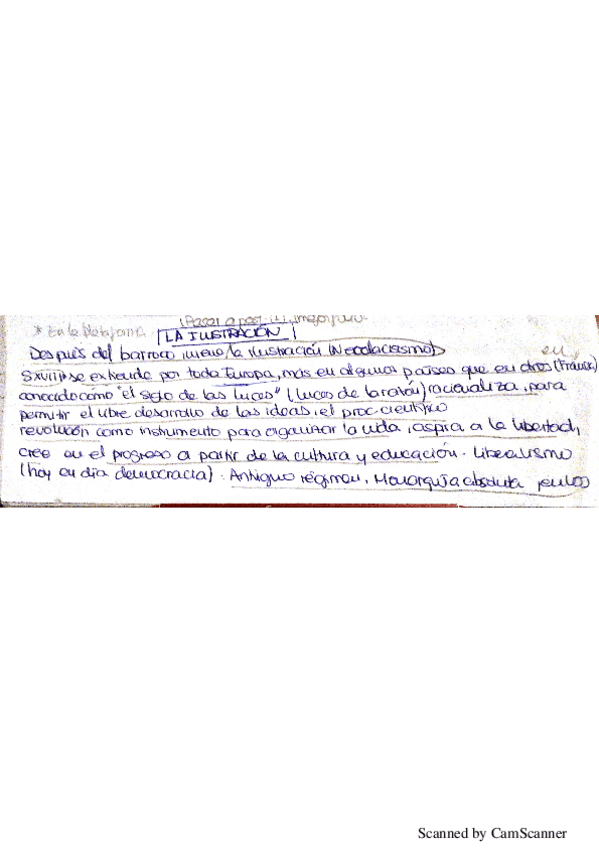 * En la Plataforma
LA ILUSTRACIÓN
Después del barroco la ilustración (Neoclacisismo) en
SXVIII se extiende por toda Europa, más en algunos países que en otros (Francia)
conocido como "el siglo de las luces" (luces de la razón) racionaliza, para
permitir el libre desarrollo de las ideas, el proc. científico
revolución como instrumento para organizar la vida, aspira a la libertad,
cree en el progreso a partir de la cultura y educación. Liberalismo
(hoy en día democracia). Antiguo régimen, Monarquía absoluta
Scanned by CamScanner